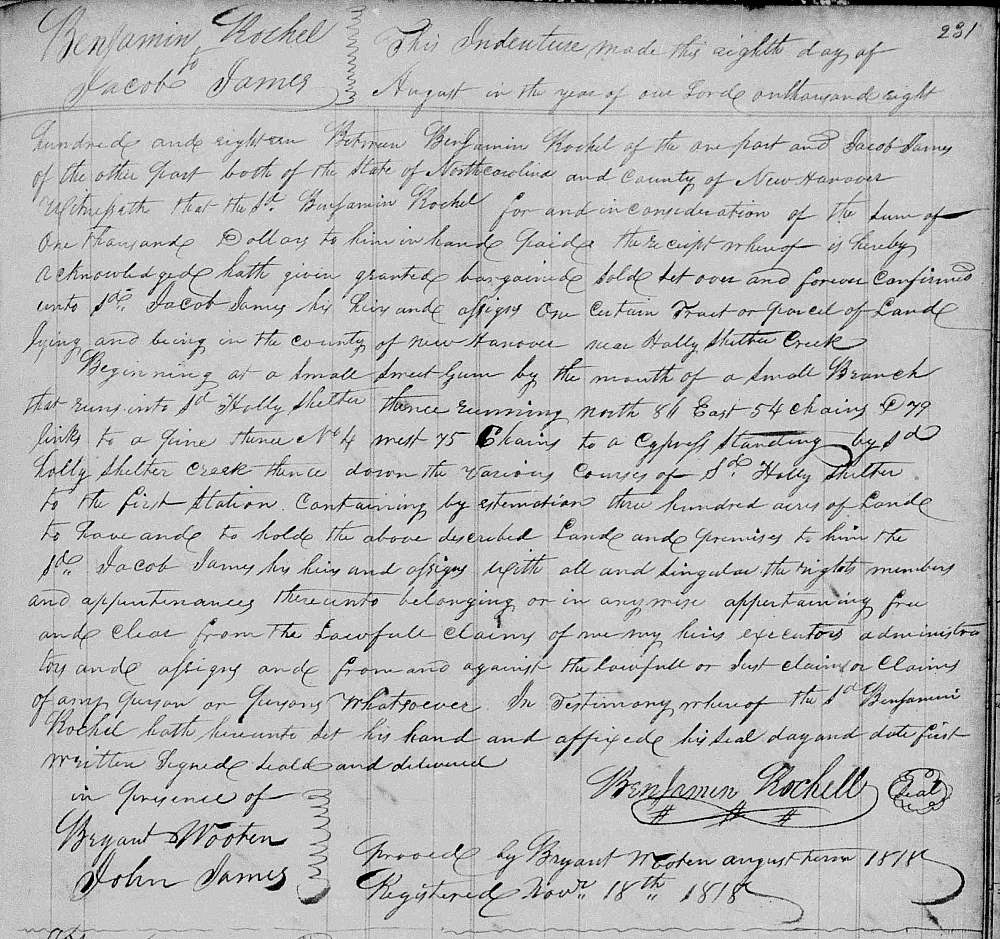 231
Benjamin Rochel
to
Jacob James
This Indenture made this eighth day of
August in the year of our Lord onthousand eight
hundred and eighteen Between Benjamin Rochel of the one part and Jacob James
of the other part both of the State of Northcarolina and County of New Hanover
Witnesseth that the sd. Benjamin Rochel for and in consideration of the Sum of
One thousand Dollars to him in hand paid the receipt wherof is hereby
acknowledged hath given granted bargained sold set over and forever confirmed
unto sd. Jacob James his heirs and assigns One certain Tract or parcel of Land
lying and being in the county of new Hanover near Holly Shelter Creek
Beginning at a small Sweet Gum by the mouth of a small Branch
that runs into sd Holly Shelter thence running north 84 East 54 chains & 79
links to a pine thence No 4 west 75 Chains to a Cypress Standing by sd
holly Shelter Creek thence down the various courses of sd. Holly Shelter
to the first Station. Containing by estemation three hundred acres of Land
to have and to hold the above described Land and premises to him the
sd. Jacob James his heirs and assigns with all and singular the rights members
and appurtenances thereunto belonging or in anywise appertaining free
and clear from the Lawfull claims of me my heirs executors administra
tors and assigns and from and against the lawfull or Just claims or claims
of any person or persons whatsoever. In Testimony whereof the sd Benjamin
Rochel hath hereunto set his hand and affixed his seal day and date first
written Signed seald and delivered
in presence of
Benjamin Rochell Seal
Bryant Wooten
John James
Prooved by Bryant Wooten august term 1818
Registered Novr. 18th 1818